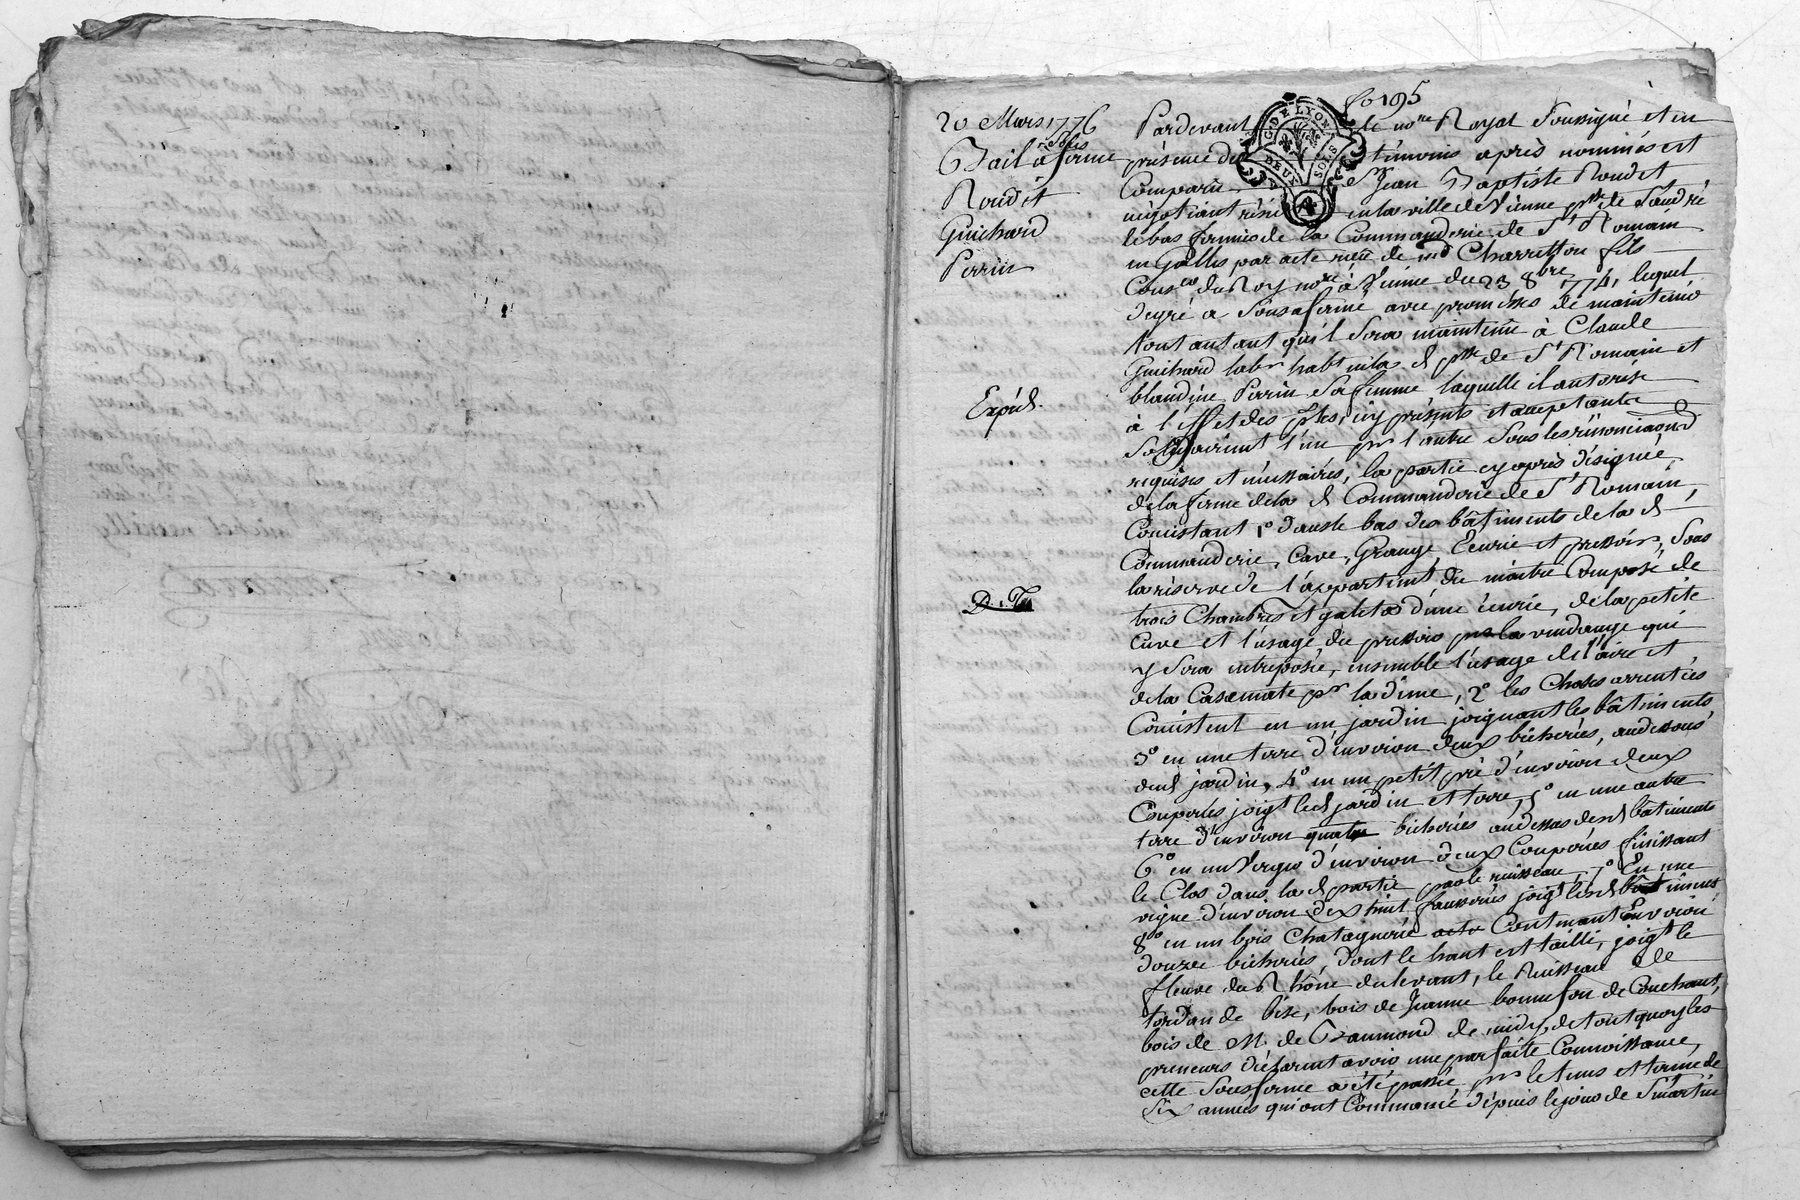 fo 195
20 Mars 1776
sous
Bail à ferme
Roudet
Guichard
Perrin
Expéd.
G. DE LYON
DEUX SOLS
Pardevant le nore Royal soussigné et en
présence des témoins après nommés est
Comparu Sr Jean Baptiste Roudet
négotiant résidt en la ville de Vienne psse de St André
le bas fermier de la Commanderie de St Romain
en Galles par acte reçu de md Charretton fils
Conser du Roy nore à Vienne du 23 8bre 1774, lequel
de gré a sousafermé avec promesses de maintenir
tout autant qu'il sera maintenu à Claude
Guichard labr habt en la d psse de St Romain et
blandine Perrin sa femme laquelle il autorise
à l'effet des ptes, icy présents et acceptants
solidairemt l'un pr l'autre sous les rénonciaons
requises et nécessaires, la partie cy après désignée
de la ferme de la d Commanderie de St Romain,
Consistant 1o dans le bas des bâtiments de la d
Commanderie, Cave, Grange, Ecurie et pressoir, sous
la réserve de l'appartemt du maitre Composé de
trois Chambres et galetas d'une écurie, de la petite
cave et l'usage du pressoir pr la vendange qui
y sera entreposée, ensemble l'usage de l'aire et
de la Casemate pr la dime, 2o les Choses arrentées
Consistent en un jardin joignant les bâtiments
3o en une terre d'environ deux bicherées, au dessous
dud jardin, 4o en un petit pré d'environ deux
Couperées joigt led jardin et terre, 5o en une autre
terre d'environ quatre bicherées au dessus desd bâtiments
6o en un Verger d'environ deux Couperées finissant
le Clos dans la d partie par le ruisseau, 7o En une
vigne d'environ dix huit fosserées joigt lesd bâtiments
8o en un bois Chataignerée Contenant Environ
douze bicherées, dont le haut est taillé, joigt le
fleuve du Rhône du levant, le Ruisseau de
bise, bois de Jeanne bonnefon de Couchant,
bois de M. de de midy, de tout quoy les
preneurs déclarent avoir une parfaite Connoissance,
cette sousferme a été passée pr le tems et terme de
six années qui ont Commencé depuis le jour de St Martin